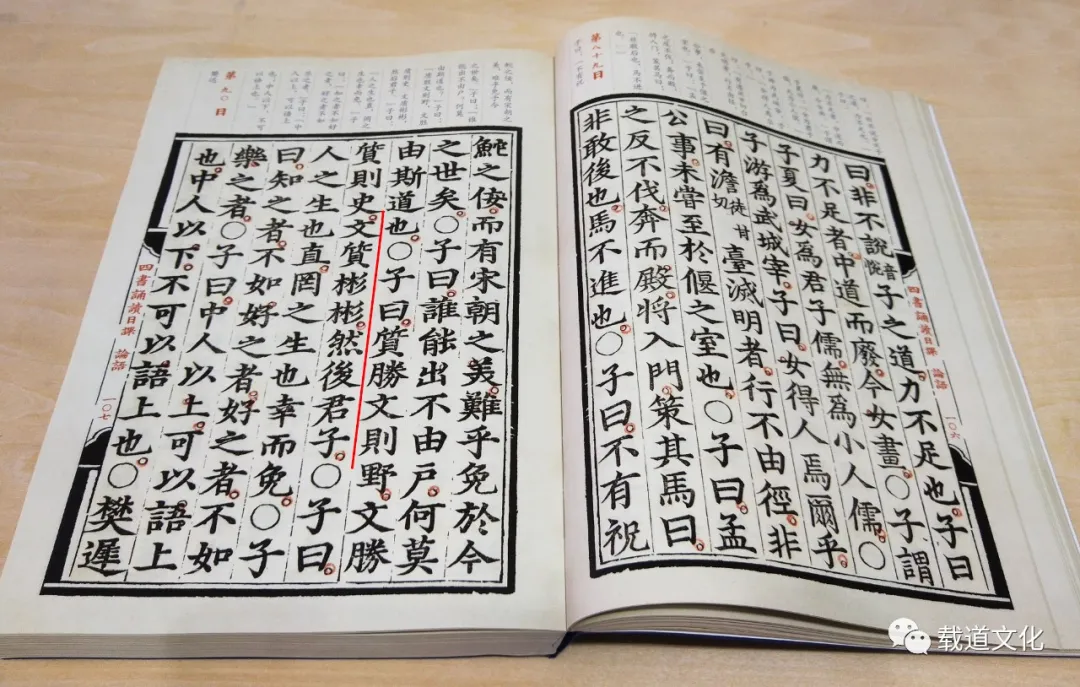 第八十九日
曰非不說音悅子之道力不足也。子曰
力不足者中道而廢。今女畫。○子謂
子夏曰。女為君子儒。無為小人儒。○
子游為武城宰。子曰。女得人焉爾乎。
曰。有澹徒甘切臺滅明者。行不由徑。非
公事。未嘗至於偃之室也。○子曰。孟
之反不伐。奔而殿。將入門。策其馬曰。
非敢後也。馬不進也。○子曰。不有祝
四書誦讀日課 論語
一〇六
第九〇日
鮀之佞。而有宋朝之美。難乎免於今
之世矣。○子曰。誰能出不由戶。何莫
由斯道也。○子曰。質勝文則野。文勝
質則史。文質彬彬。然後君子。○子曰。
人之生也直。罔之生也幸而免。○子
曰。知之者。不如好之者。好之者。不如
樂之者。○子曰。中人以上。可以語上
也。中人以下。不可以語上也。○樊遲
四書誦讀日課 論語
一〇七
载道文化